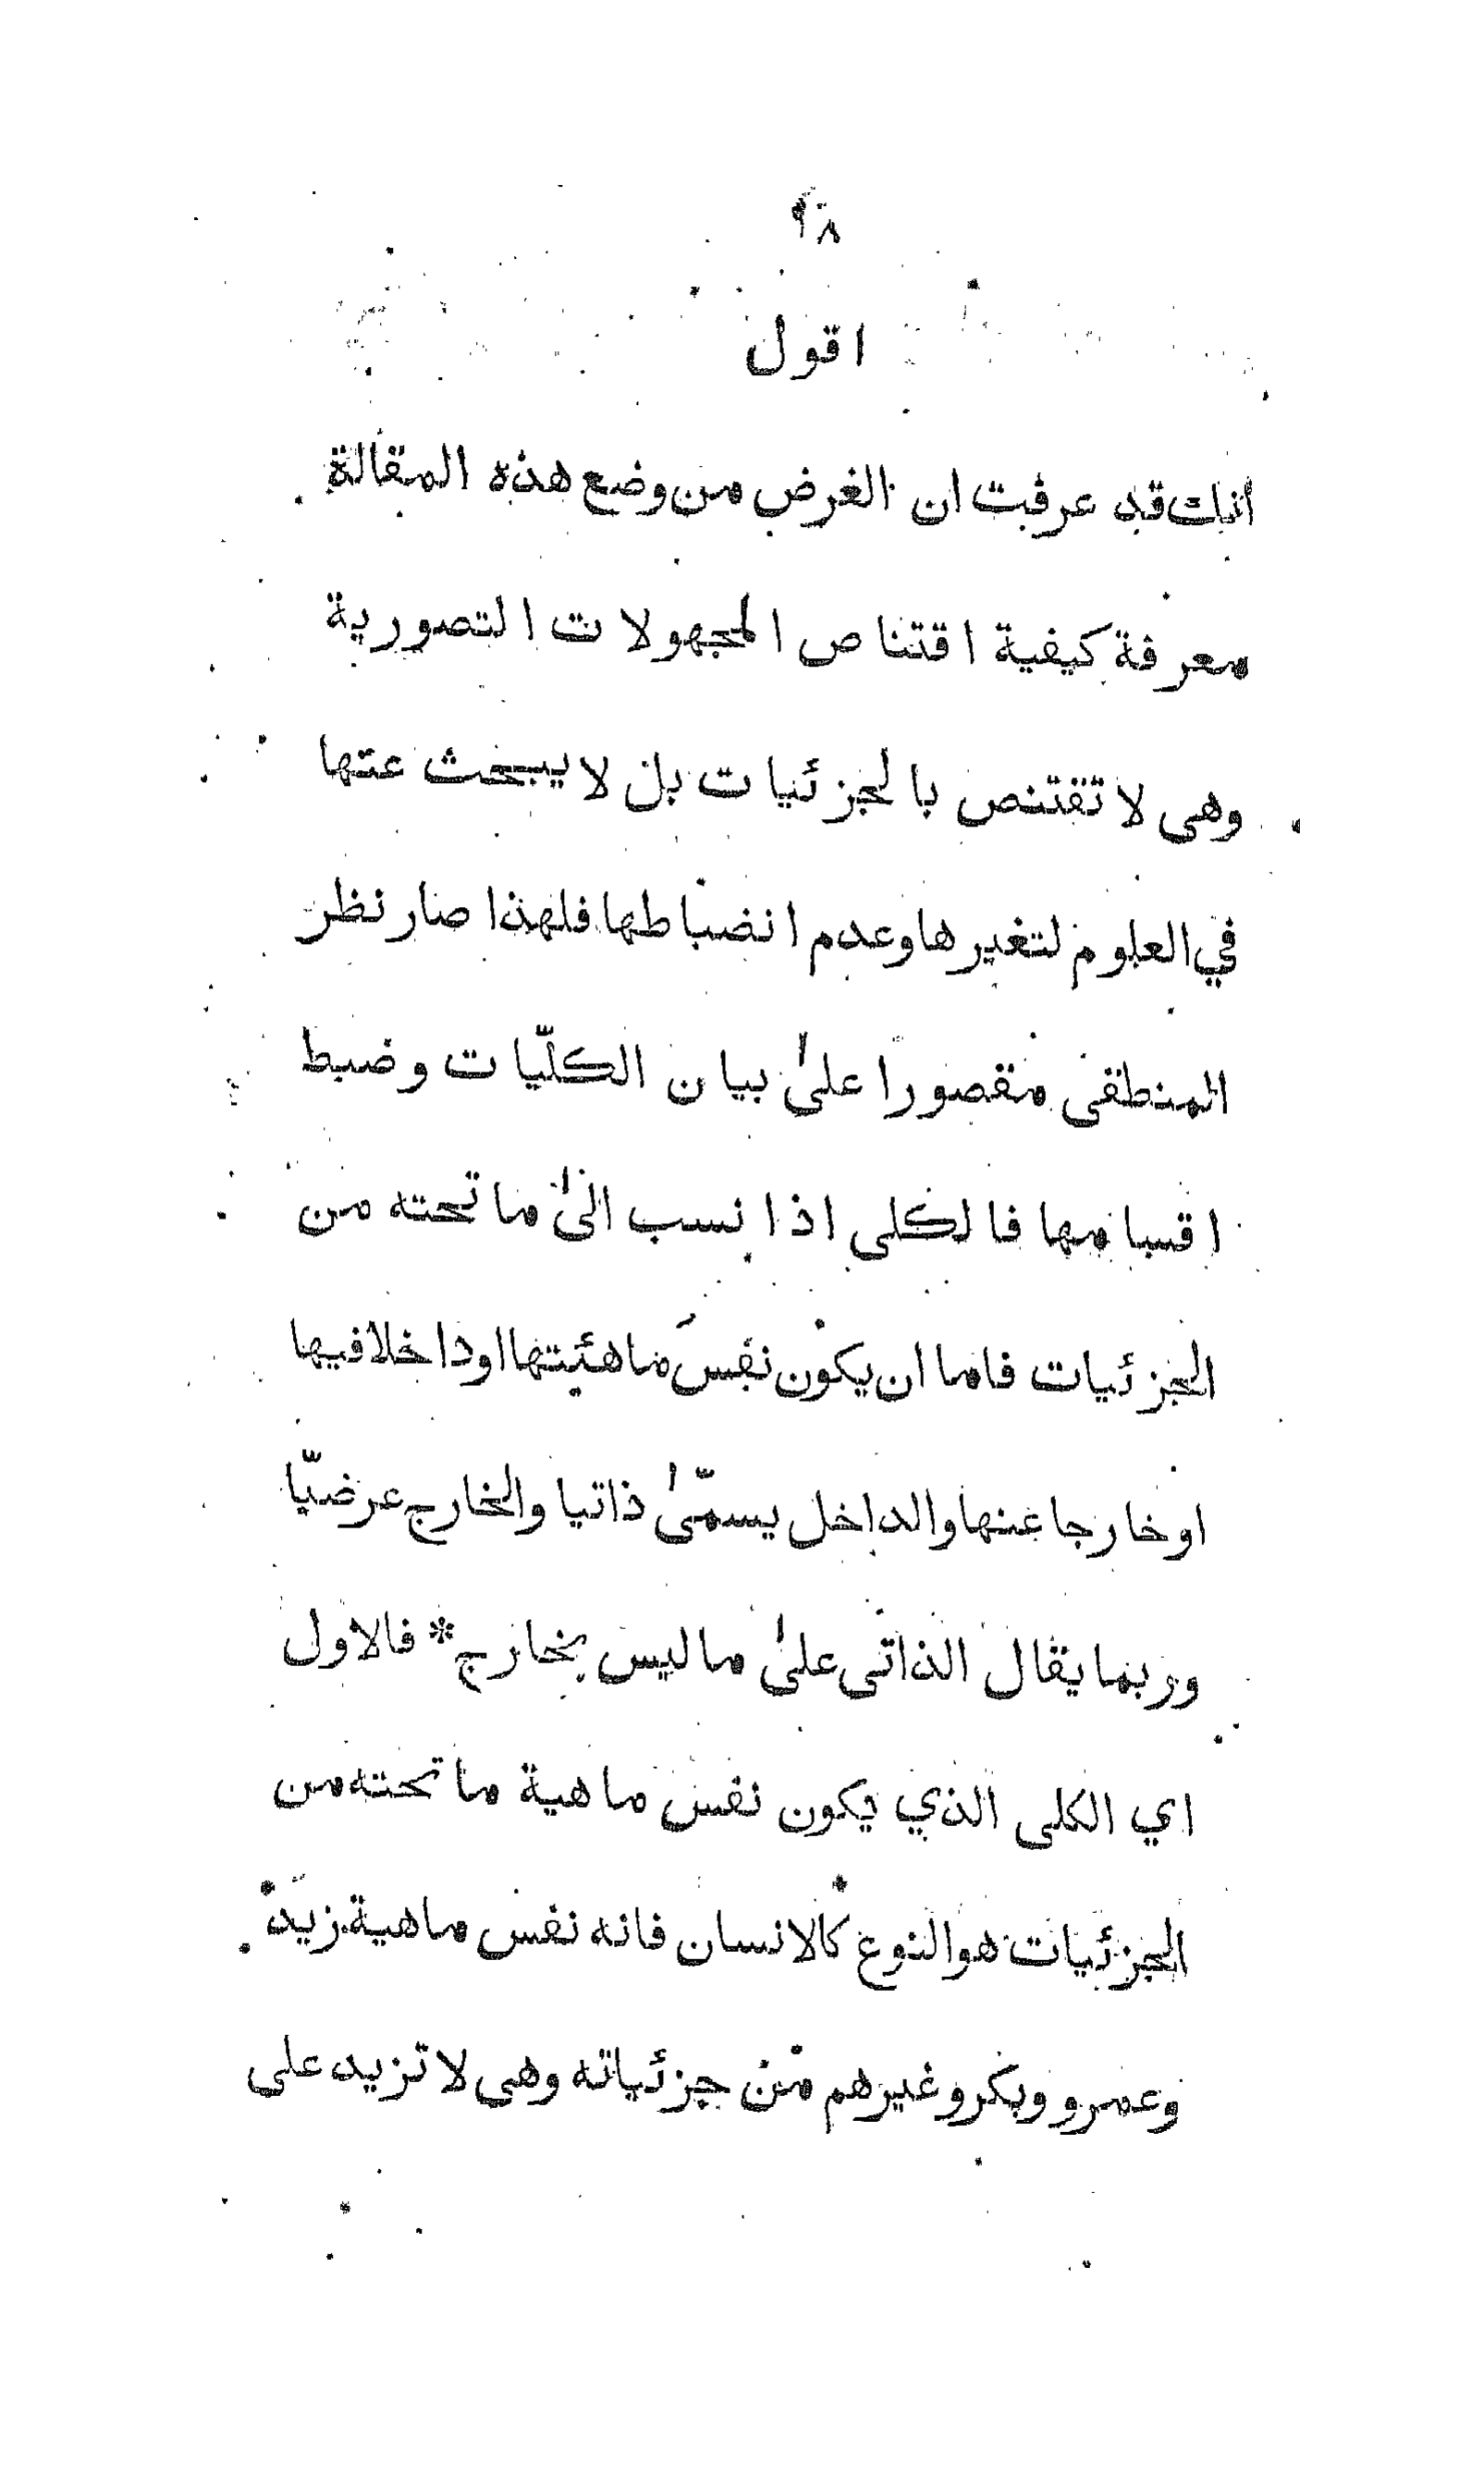 ٩٨
اقول
انك قد عرفت ان الغرض من وضع هذه المقالة
معرفة كيفية اقتناص المجهولات التصورية
وهى لا تقتنص بالجزئيات بل لا يبحث عنها
في العلوم لتغيرها وعدم انضباطها فلهذا صار نظر
المنطقى مقصورا علىٰ بيان الكلّيات وضبط
اقسامها فالكلى اذا نسب الىٰ ما تحته من
الجزئيات فاما ان يكون نفسَ ماهئيتها او داخلا فيها
اوخارجا عنها والداخل يسمّىٰ ذاتيا والخارج عرضيّا
وربما يقال الذاتى علىٰ ما ليس بخارج * فالاول
اي الكلى الذي يكون نفس ماهية ما تحته من
الجزئيات هو النوع كالانسان فانه نفس ماهية زيد
وعمرو وبكر وغيرهم من جزئياته وهى لا تزيد على